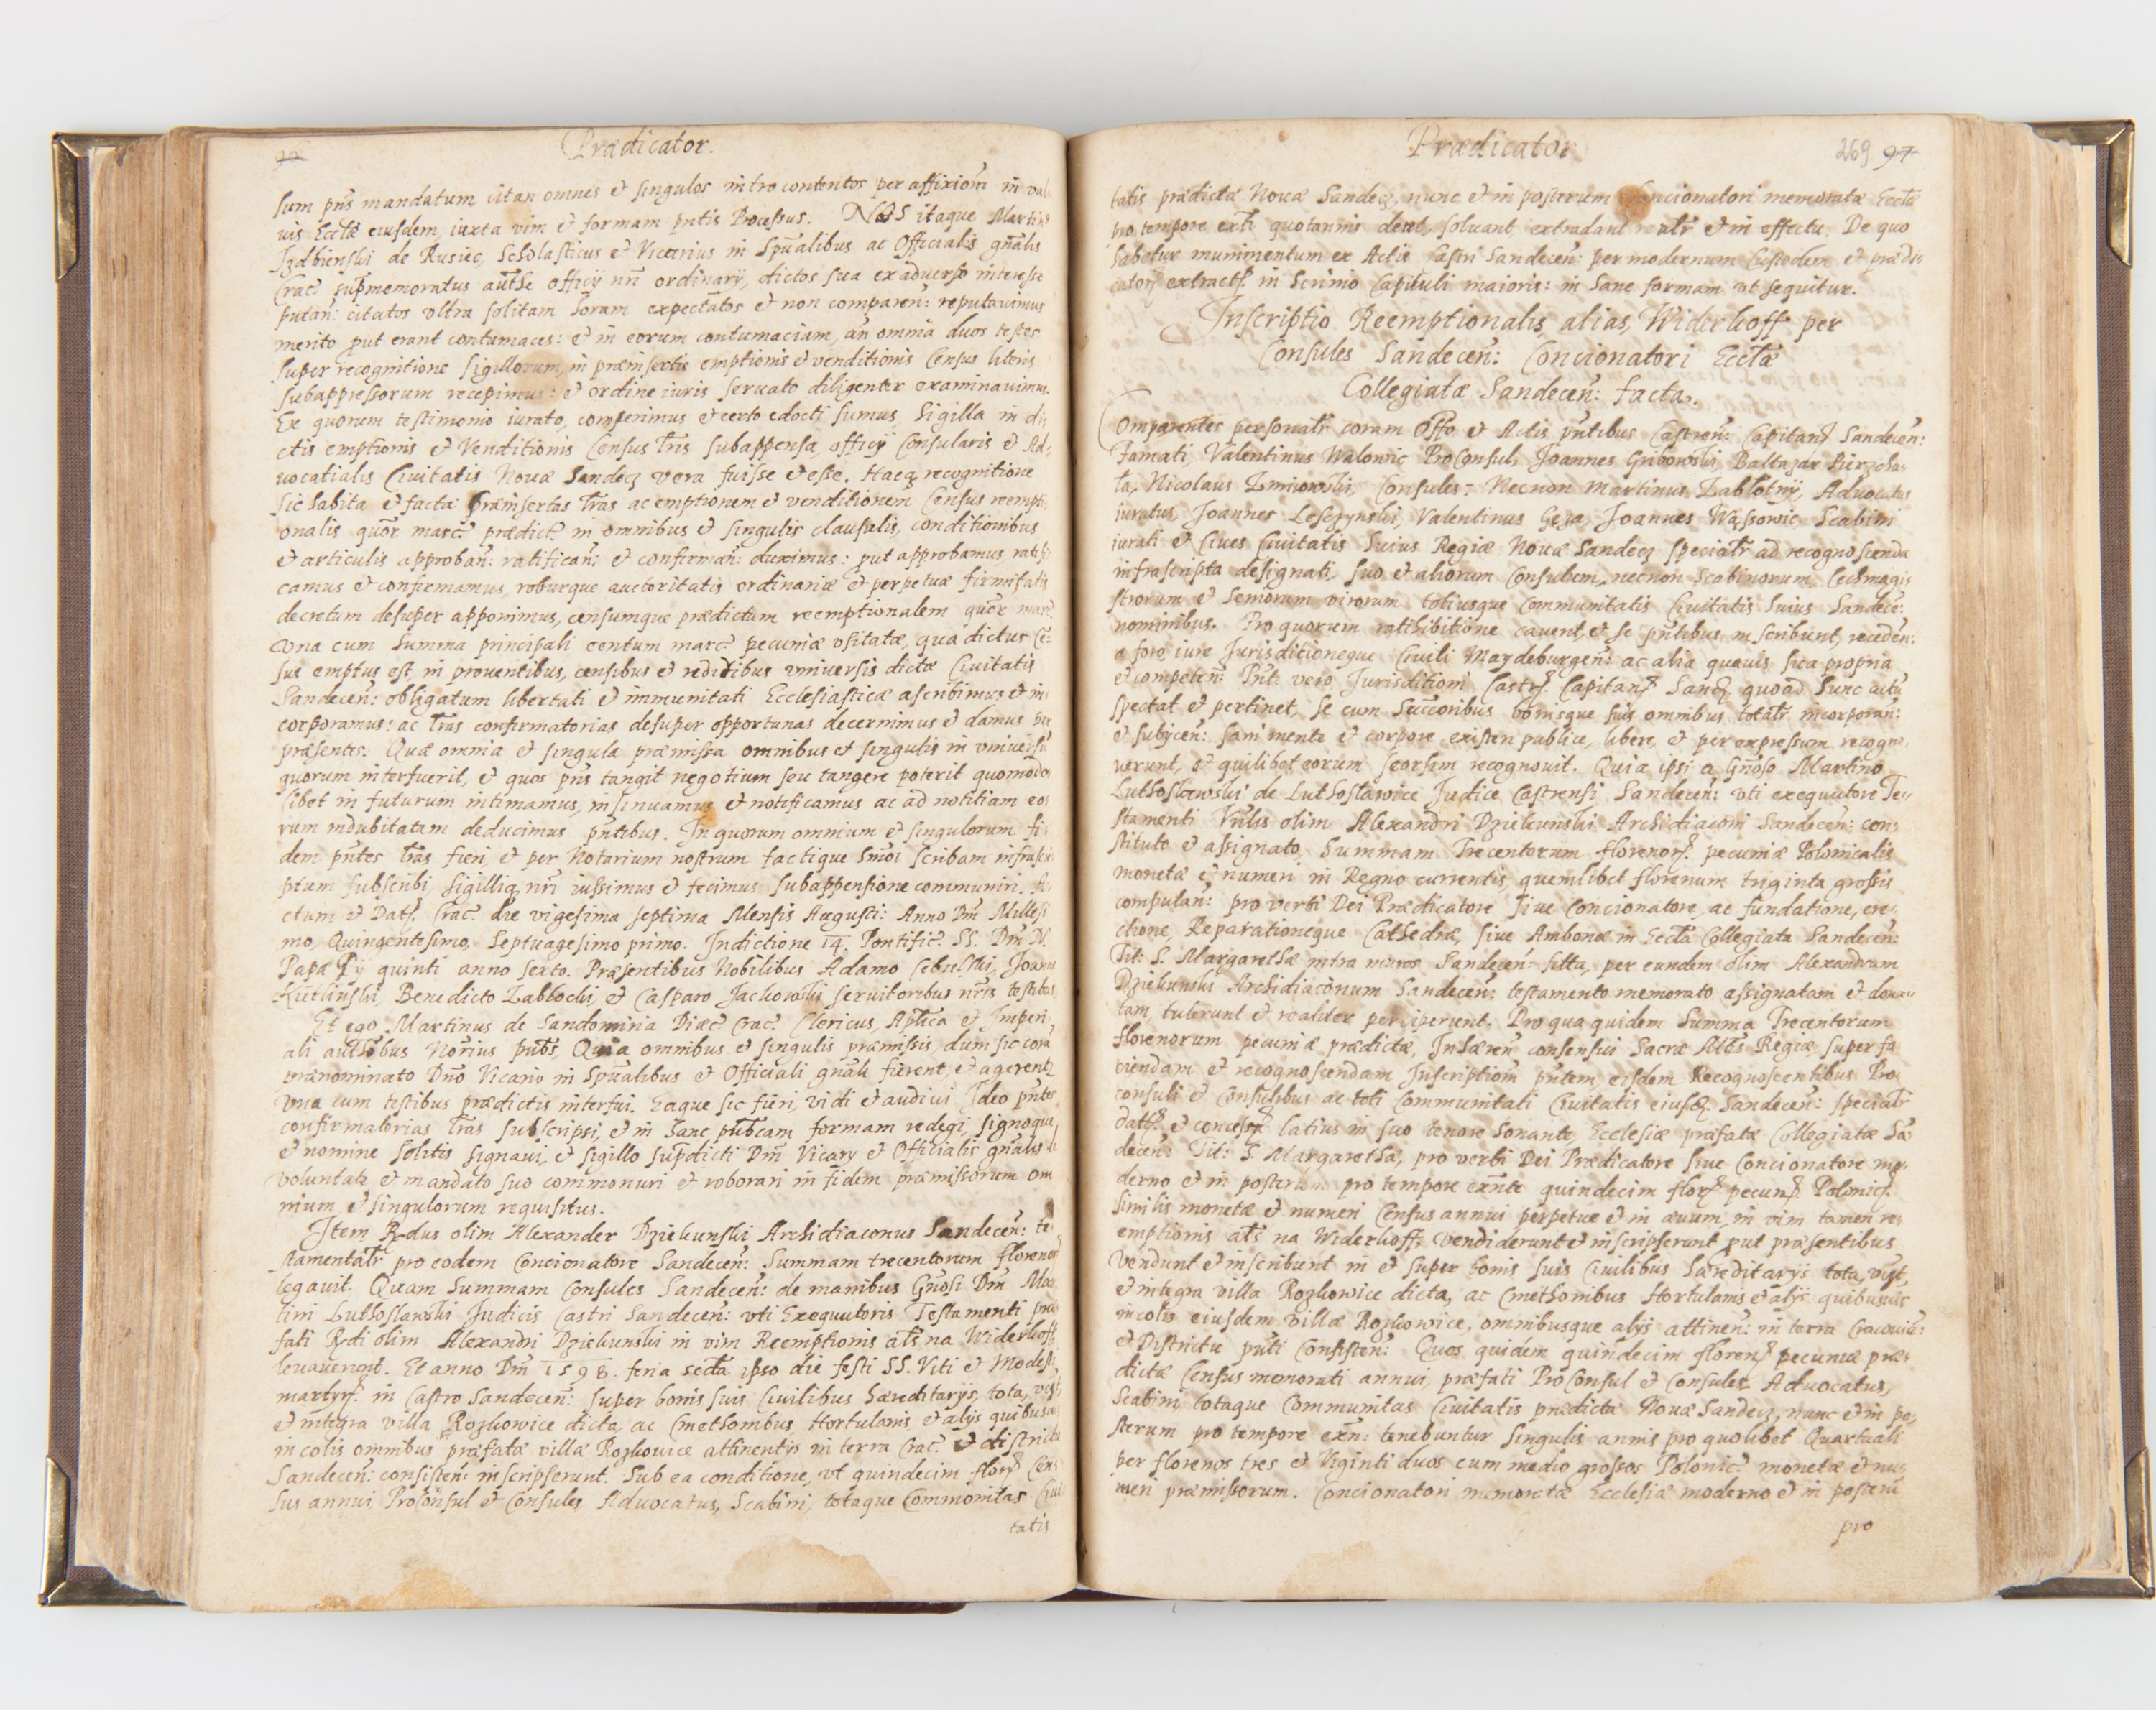 Prædicator.
sum pñs mandatum citari omnes et singulos introcontentos per affixionem in val-
uis Ecclæ eiusdem, iuxta vim et formam pñtis Processus. Nos itaque Martinus
Izdbienski de Rusiec, Scholasticus et Vicarius in Spũalibus ac Officialis gñalis
Crac: supmemoratus autͪe officij nri ordinarij, dictos sua ex aduerso interesse
putan: citatos vltra solitam horam expectatos et non comparen: reputauimus
merito put erant contumaces: et in eorum contumaciam, an omnia duos testes
super recognitione sigillorum, in præinsertis emptionis et venditionis Census literis
subappressorum recepimus: et ordine iuris seruato diligenter examinauimus.
Ex quorum testimonio iurato, comperimus et certo edocti sumus, Sigilla in di-
ctis emptionis et Venditionis Census lris subappensa officij Consularis et Ad-
uocatialis Ciuitatis Nouæ Sandecz vera fuisse et esse. Hacq recognitione
sic habita et facta præinsertas lras ac emptionem et venditionem Census reempti-
onalis quor marc: prædict: in omnibus et singulis clausulis, conditionibus
et articulis approban: ratifican: et confirman: duximus: put approbamus, ratifi-
camus et confirmamus, roburque auctoritatis ordinariæ et perpetuæ firmitatis
decretum desuper apponimus, censumque prædictum reemptionalem quor marc:
vna cum Summa principali centum marc: pecuniæ vsitatæ, qua dictus Cē-
sus emptus est, in prouentibus, censibus et redditibus vniuersis dictæ Ciuitatis
Sandecen: obligatum libertati et immunitati Ecclesiasticæ ascribimus et in-
corporamus: ac lras confirmatorias desuper opportunas decernimus et damus per
præsentes. Quæ omnia et singula præmissa omnibus et singulis in vniuersũ
quorum interfuerit, et quos pñs tangit negotium seu tangere poterit quomodo-
libet in futurum intimamus, insinuamus et notificamus ac ad notitiam eo-
rum indubitatam deducimus pñtibus. In quorum omnium et singulorum fi-
dem pñtes lras fieri, et per Notarium nostrum factique hmoi scribam infrascri-
ptum subscribi, sigilliq nri iussimus et fecimus subappensione communiri. A-
ctum et Dat: Crac: die vigesima septima Mensis Augusti: Anno Dni Millesi-
mo, Quingentesimo, Septuagesimo primo. Indictione 14. Pontific: SS. Dni N.
Papæ Pij quinti anno sexto. Præsentibus Nobilibus Adamo Cebulski, Joanne
Kietlinski, Benedicto Zabłocki, et Casparo Jachowski seruitoribus nris testibus
Et ego Martinus de Sandomiria Diæc: Crac: Clericus, Aplica et Imperi-
ali authobus Norius pubs, Quia omnibus et singulis præmissis, dum sic cora
prænominato Dno Vicario in Spũalibus et Officiali gñali fierent, et agerentr
vna cum testibus prædictis interfui. Eaque sic fieri, vidi et audiui. Ideo pñtes
confirmatorias lras subscripsi, et in hanc publcam formam redegi, signoque
et nomine solitis signaui, et sigillo supdicti Dni Vicarij et Officialis gñalis de
voluntate et mandato suo communiri et roborari in fidem præmissorum om-
nium et singulorum requisitus.
Item Rndus olim Alexander Dziekunski Archidiaconus Sandecen: te-
stamentalr pro eodem Concionatore Sandecen: Summam trecentorum florenor
legauit. Quam Summam Consules Sandecen: de manibus Gnosi Dni Mar-
tini Lutkosławski Judicis Castri Sandecen: vti Exequutoris Testamenti præ-
fati Rndi olim Alexandri Dziekunski in vim Reemptionis als na Widerkoff
leuauerunt. Et anno Dni 1598. feria secda ipso die festi SS. Viti et Modesti
martyr: in Castro Sandecen: super bonis suis Ciuilibus hæreditarijs, tota,
et integra villa Rozkowice dicta, ac Cmethonibus Hortulanis et alijs quibusuis
incolis omnibus præfatæ villæ Rozkowice attinentijs in terra Crac: et districtu
Sandecen: consisten: inscripserunt. Sub ea conditione, vt quindecim flor: Cen-
sus annui Proconsul et Consules Aduocatus, Scabini, totaque Communitas Ciui-
tatis
Prædicator
269 97
tatis prædictæ Nouæ Sandecz, nunc et in posterum Concionatori memoratæ Ecclæ
pro tempore exñti quotannis dent, soluant extradant realr et in effectu. De quo
habetur munimentum ex Actis Castri Sandecen: per modernum Custodem et prædi-
catorem extract: in Scrinio Capituli maioris: in hanc formam vt sequitur.
Inscriptio Reemptionalis alias, Widerkoff per
Consules Sandecen: Concionatori Ecclæ
Collegiatæ Sandecen: facta.
Comparentes personalr coram Offo et Actis pñtibus Castren: Capitan: Sandecen:
Famati, Valentinus Walowic ProConsul, Joannes Gribowski, Baltazar Pierzcha-
ła, Nicolaus Zmiowski, Consules: Necnon Martinus Zabłotnij, Aduocatus
iuratus, Joannes Leszczynski, Valentinus Geza, Joannes Wąssowic, Scabini
iurati et Ciues Ciuitatis huius Regiæ Nouæ Sandecz specialr ad recognoscenda
infrascripta designati, suo et aliorum Consulum, necnon Scabinorum, Cechmagi-
strorum et Seniorum virorum totiusque Communitatis Ciuitatis huius Sandecē:
nominibus. Pro quorum ratihibitione cauent, et se pñtibus inscribunt, receden:
a foro iure Jurisditioneque Ciuili Maydeburgen: ac alia quauis sua propria
et competen: Pñti vero Jurisditioni Castr: Capitan: Sandc: quoad hunc actũ
spectat et pertinet, se cum Succoribus bonisque suis omnibus totalr incorporan:
et subijcen: sani mente et corpore existen publice, libere, et per expressum recogno-
uerunt, et quilibet eorum seorsim recognouit. Quia ipsi a Gnoso Martino
Lutkosławski de Lutkosławice Judice Castrensi Sandecen: vti exequutore Te-
stamenti Vnlis olim Alexandri Dziekunski Archidiaconi Sandecen: con-
stituto et assignato, Summam Trecentorum florenor: pecuniæ Polonicalis
monetæ et numeri in Regno currentis, quemlibet florenum triginta grossis
computan: pro verbi Dei Prædicatore siue Concionatore, ac fundatione, ere-
ctione, Reparationeque Cathedræ, siue Ambonæ in Eccla Collegiata Sandecen:
Tit: S. Margarethæ intra muros Sandecen: sita, per eundem olim Alexandrum
Dziekunski Archidiaconum Sandecen: testamento memorato assignatam et dona-
tam, tulerunt et realiter perceperunt. Pro qua quidem Summa Trecentorum
florenorum pecuniæ prædictæ, Inhæren consensui Sacræ Mtis Regiæ super fa-
ciendam et recognoscendam Inscriptionem pñtem eisdem Recognoscentibus Pro-
consuli et Consulibus ac toti Communitati Ciuitatis eiusd: Sandecen: specialr
dato et concesso latius in suo tenore sonante, Ecclesiæ præfatæ Collegiatæ Sã-
decen: Tit: S. Margarethæ, pro verbi Dei Prædicatore siue Concionatore mo-
derno et in posterum pro tempore exñte quindecim flor: pecun: Polonic:
similis monetæ et numeri Census annui perpetue et in æuum, in vim tamen re-
emptionis als na Widerkoff, vendiderunt et inscripserunt put præsentibus
vendunt et inscribunt in et super bonis suis Ciuilibus hæreditarijs tota,
et integra villa Rozkowice dicta, ac Cmethonibus Hortulanis et alijs quibusuis
incolis eiusdem villæ Rozkowice, omnibusque alijs attinen: in terra Cracouiē:
et Districtu pñti Consisten: Quos quidem quindecim floren: pecuniæ præ-
dictæ Census memorati annui, præfati ProConsul et Consules Aduocatus,
Scabini totaque Communitas Ciuitatis prædictæ Nouæ Sandecz, nunc et in po-
sterum pro tempore exñ: tenebuntur singulis annis pro quolibet Quartuali
per florenos tres et Viginti duos cum medio grossos Polonic: monetæ et nu-
meri præmissorum. Concionatori memoratæ Ecclesiæ moderno et in posterũ
pro